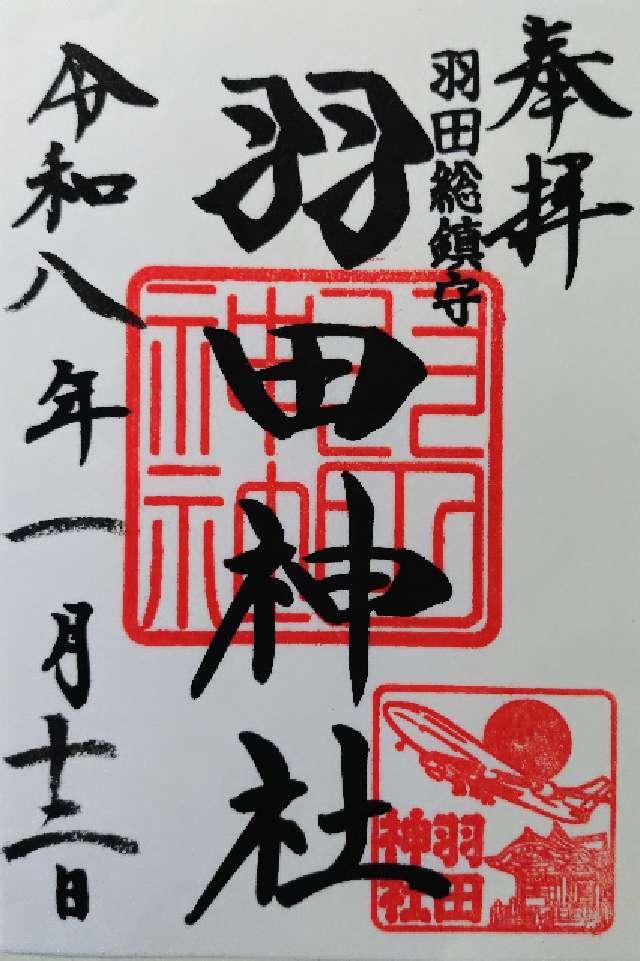 奉拝
羽田総鎮守
羽田神社
令和八年一月十二日
羽田
神社